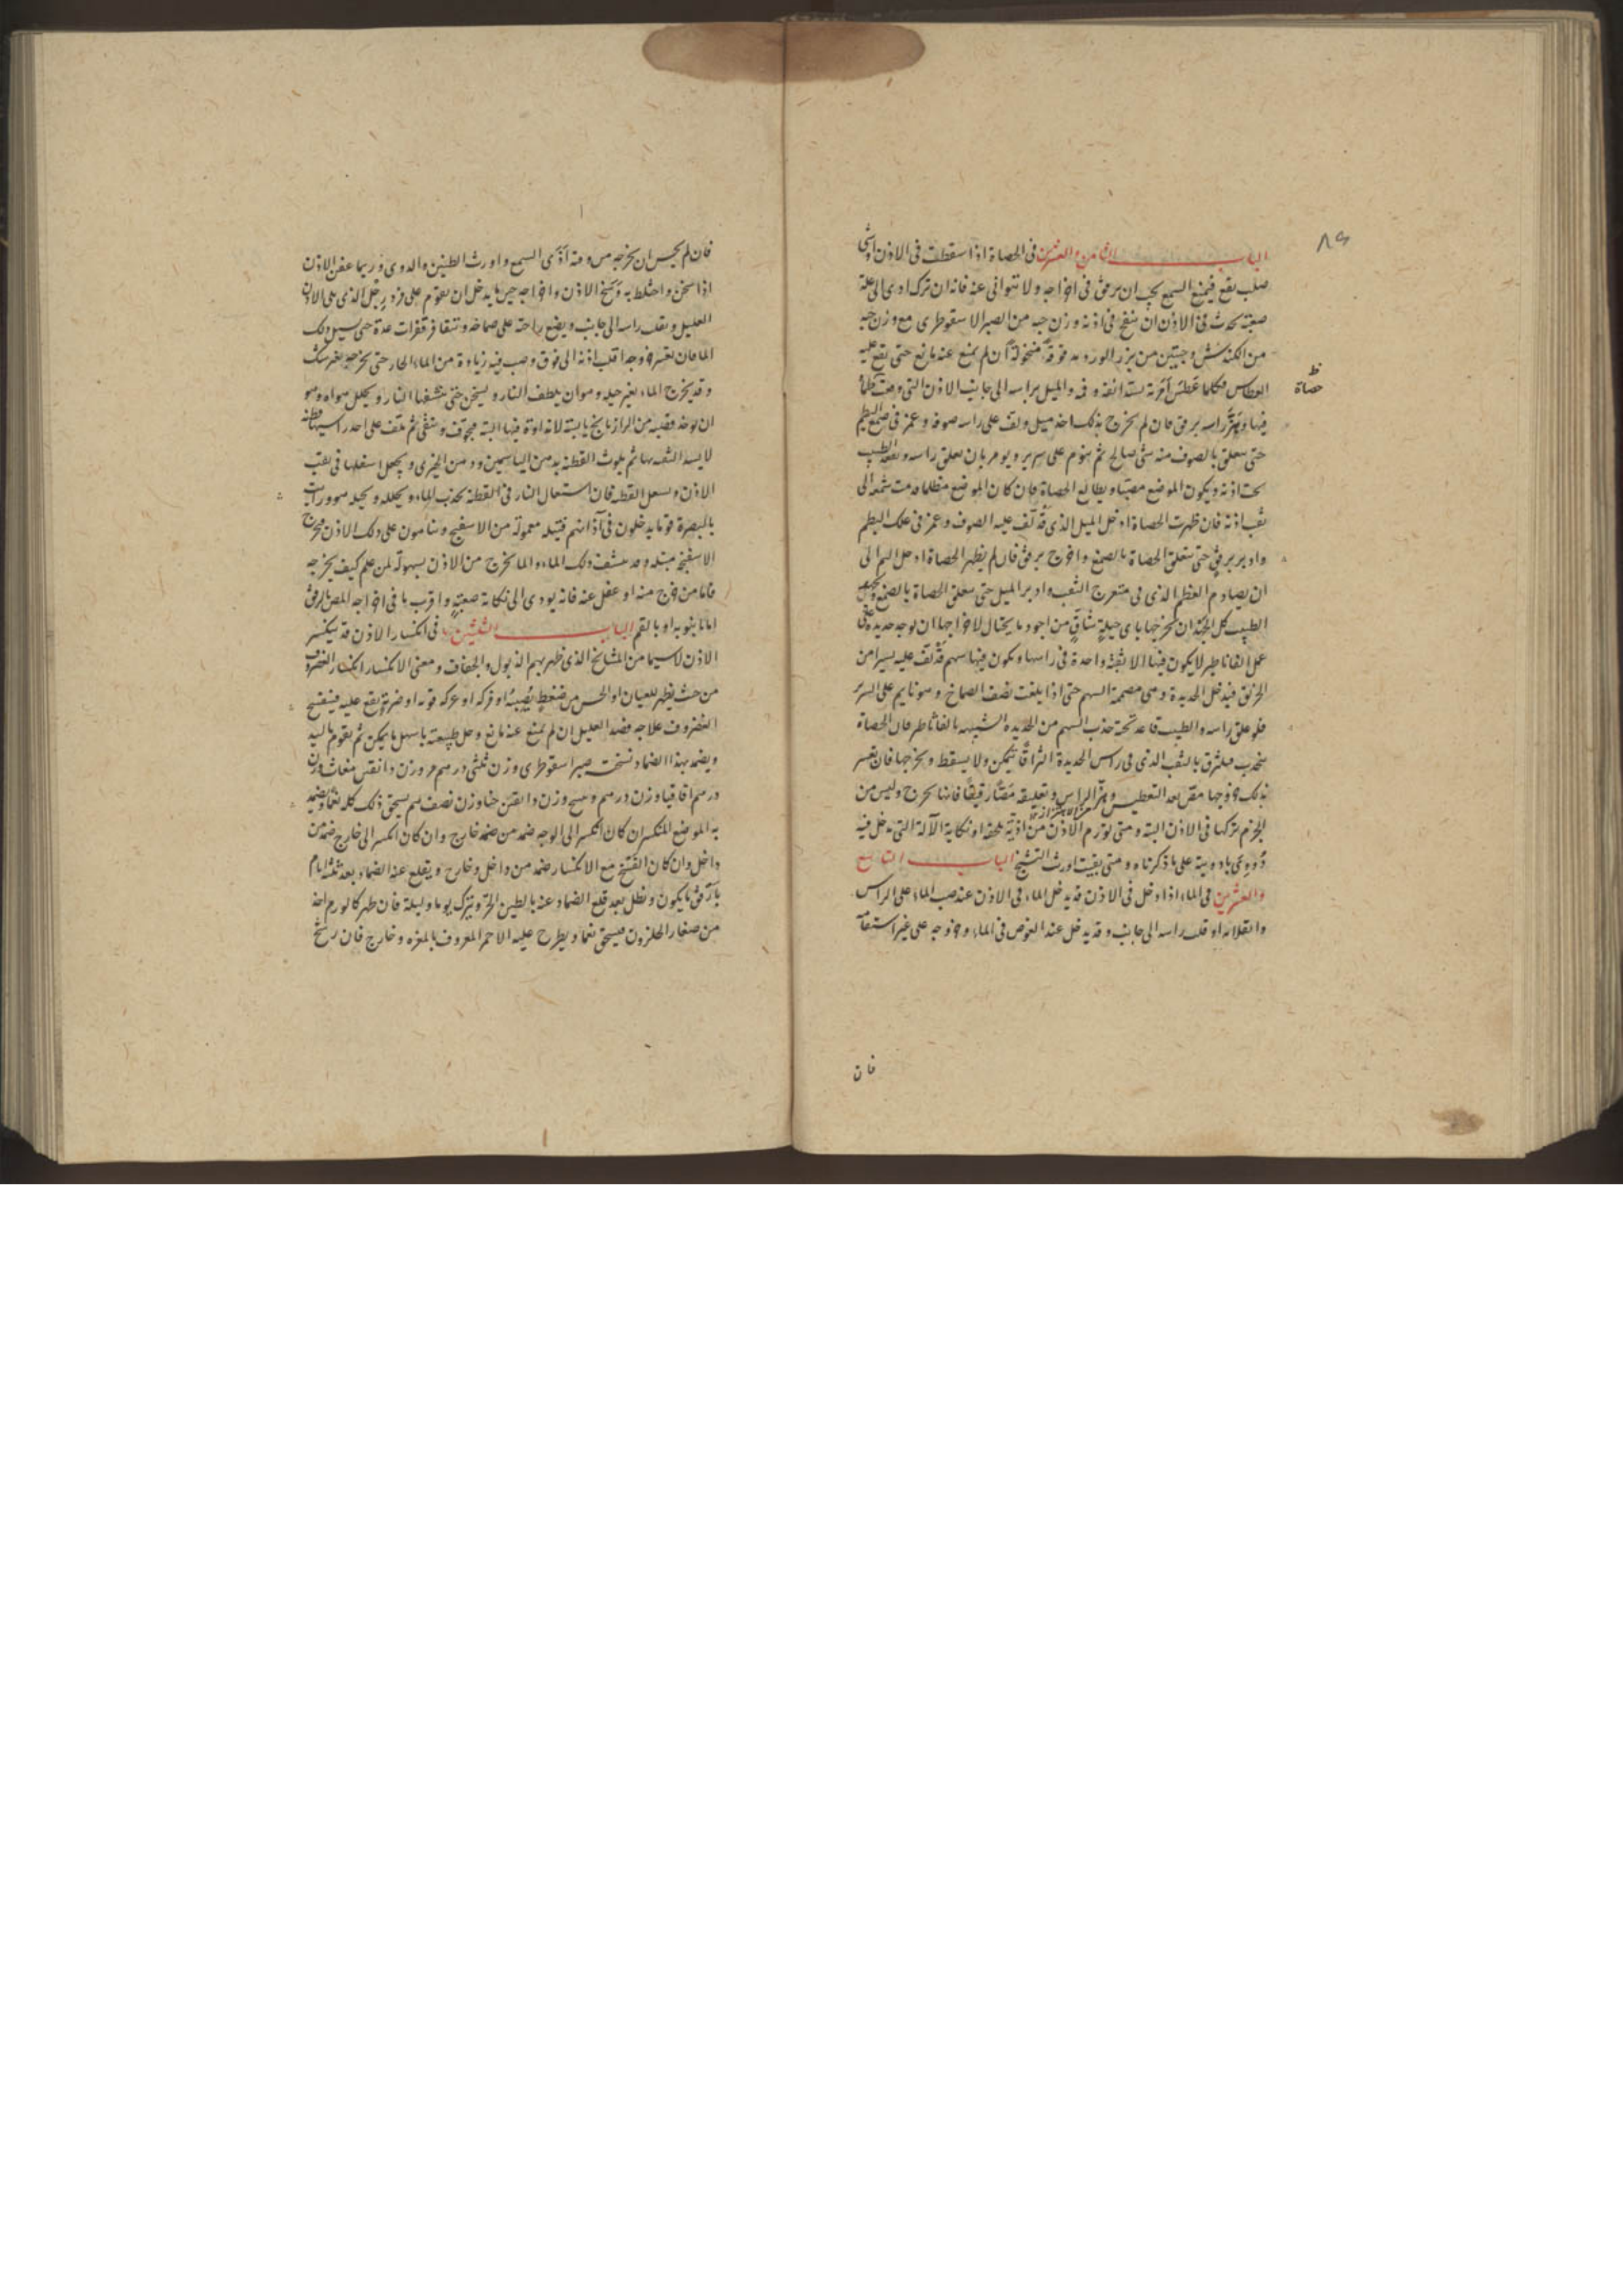 الباب الثامن والعشرين في الحصاة اذا سقطت في الاذن او شي
صلب يقع فيمنع السمع يجب ان يرفق في اخراجه ولا يتوانى عنه فانه ان ترك ادى الى علة
صعبة تحدث في الاذن ان ينفخ في اذنه وزن حبه من الصبر الاسقوطرى مع وزن حبه
من الكندش وحبتين من بزر الورد مدقوقة منخولة ان لم يمنع عنه مانع حتى يقع عليه
العطاس فكلما عطس امرته بسد انفه وفمه والميل براسه الى جانب الاذن التي وقعت
حصاة
فيها ويهز راسه برفق فان لم يخرج بذلك اخذ ميل ولف على راسه صوفة وغمز في صمغ البطم
حتى يتعلق بالصوف منه شي صالح ثم ينوم على سرير ويومر بان يعلق راسه ويقعد الطبيب
تحت اذنه ويكون الموضع مضيا ويطالع الحصاة فان كان الموضع مظلما قدمت شمعه الى
ثقب اذنه فان ظهرت الحصاة ادخل الميل الذي قد لف عليه الصوف وغمز في علك البطم
وادير برفق حتى يتعلق الحصاة بالصمغ واخرج برفق فان لم يظهر الحصاة ادخل الميل الى
ان يصادم العظم الذي في منعرج الثقب وادير الميل حتى يتعلق الحصاة بالصمغ
الطبيب كل الجهد ان يخرجها باي حيلة من اجود ما يحتال لاخراجها ان يوخذ حديدة على
عمل القاثاطير لا يكون فيها الا ثقبة واحدة في راسها ويكون فيها سهم قد لف عليه يسير من
الخرق فيدخل الحديدة وهي مصمتة السهم حتى اذا بلغت نصف الصماخ وهو نايم على السرير
قد علق راسه والطبيب قاعد تحته جذب السهم من الحديدة الشبيهه بالقاثاطير فان الحصاة
ينجذب فيلتزق بالثقب الذي في راس الحديدة التزاقا يمكن ولا يسقط ويخرجها فان تعسر
بذلك خروجها مص بعد التعطيس وهز الراس وتعليقه مصا رقيقا فانها تخرج وليس من
الحزم تركها في الاذن البتة ومتى تورم الاذن من اذية تلحقه او نكاية الآلة التي تدخل فيه
دووي بادوية على ما ذكرناه ومتى بقيت اورث التشنج الباب التاسع
والعشرين في الماء اذا دخل في الاذن قد يدخل الماء في الاذن عند صب الماء على الراس
وانقلابه او قلب راسه الى جانب وقد يدخل عند الغوص في الماء وخروجه على غير استقامة
فان
فان لم يحسن ان يخرجه من وقته اذى السمع واورث الطنين والدوى وربما عفن الاذن
اذا سخن واختلط به وسخ الاذن واخراجه حين ما يدخل ان يقوم على فرد رجل الذي يلي الاذن
العليل ويقلب راسه الى جانب ويضع راحته على صماخه ويتقافز قفزات عدة حتى يسيل ذلك
الما فان تعسر خروجه اقلب اذنه الى فوق وصب فيه زيادة من الماء الحار حتى يخرجه بغير شك
وقد يخرج الماء بغير حيله وهو ان يلطف النار ويسخن حتى ينشفها النار ويحلل هواه وهو
ان يوخذ قصبه من الرازيانج يابسة لا نداوة فيها البتة فيجوف وينقى ثم يلف على احد راسيها قطنة
لا يسد الثقب بها ثم يلوث القطنة بدهن الياسمين ودهن الخيرى ويجعل اسفلها في ثقب
الاذن ويشعل القطنه فان اشتعال النار في القطنة يجذب الماء ويحلله ويحيله هوا ورايت
بالبصرة قوما يدخلون في آذانهم فتيلة معمولة من الاسفنج وينامون على ذلك الاذن فيخرج
الاسفنجة مبتلة وقد ينشف ذلك الماء والما يخرج من الاذن بسهولة لمن علم كيف يخرجه
فاما من خرج منه او غفل عنه فانه يودى الى نكاية صعبة واقرب ما في اخراجه المص بالرفق
اما بانبوبة او بالفم الباب الثلثين في انكسار الاذن قد ينكسر
الاذن لا سيما من المشايخ الذي ظهر بهم الذبول والجفاف ومعنى الانكسار انكسار الغضروف
من حيث يظهر للعيان او الحس من ضغط يصيبه او فركه او عركه قوية او ضربة يقع عليه فينفسخ
الغضروف علاجه فصد العليل ان لم يمنع عنه مانع وحل طبيعته باسهل ما يمكن ثم يقوم باليد
ويضمد بهذا الضماد نسخته صبر اسقوطرى وزن ثلثي درهم مر وزن دانقين مغاث وزن
درهم اقاقيا وزن درهم وزن دانقين حنا وزن نصف درهم يسحق ذلك كله نعما ويضمد
به الموضع المنكسر ان كان انكسر الى الوجه ضمد من ضمد خارج وان كان انكسر الى خارج ضمد من
داخل وان كان الفسخ مع الانكسار ضمد من داخل وخارج ويقلع عنه الضماد بعد ثلثة ايام
بارفق ما يكون ويطلى بعد قلع الضماد عنه بالطين الحر ويترك يوما وليلة فان ظهر كالورم اخذ
من صغار الحلزون فيسحق نعما ويطرح عليه الاحمر المعروف بالمغره وخارج فان رشح